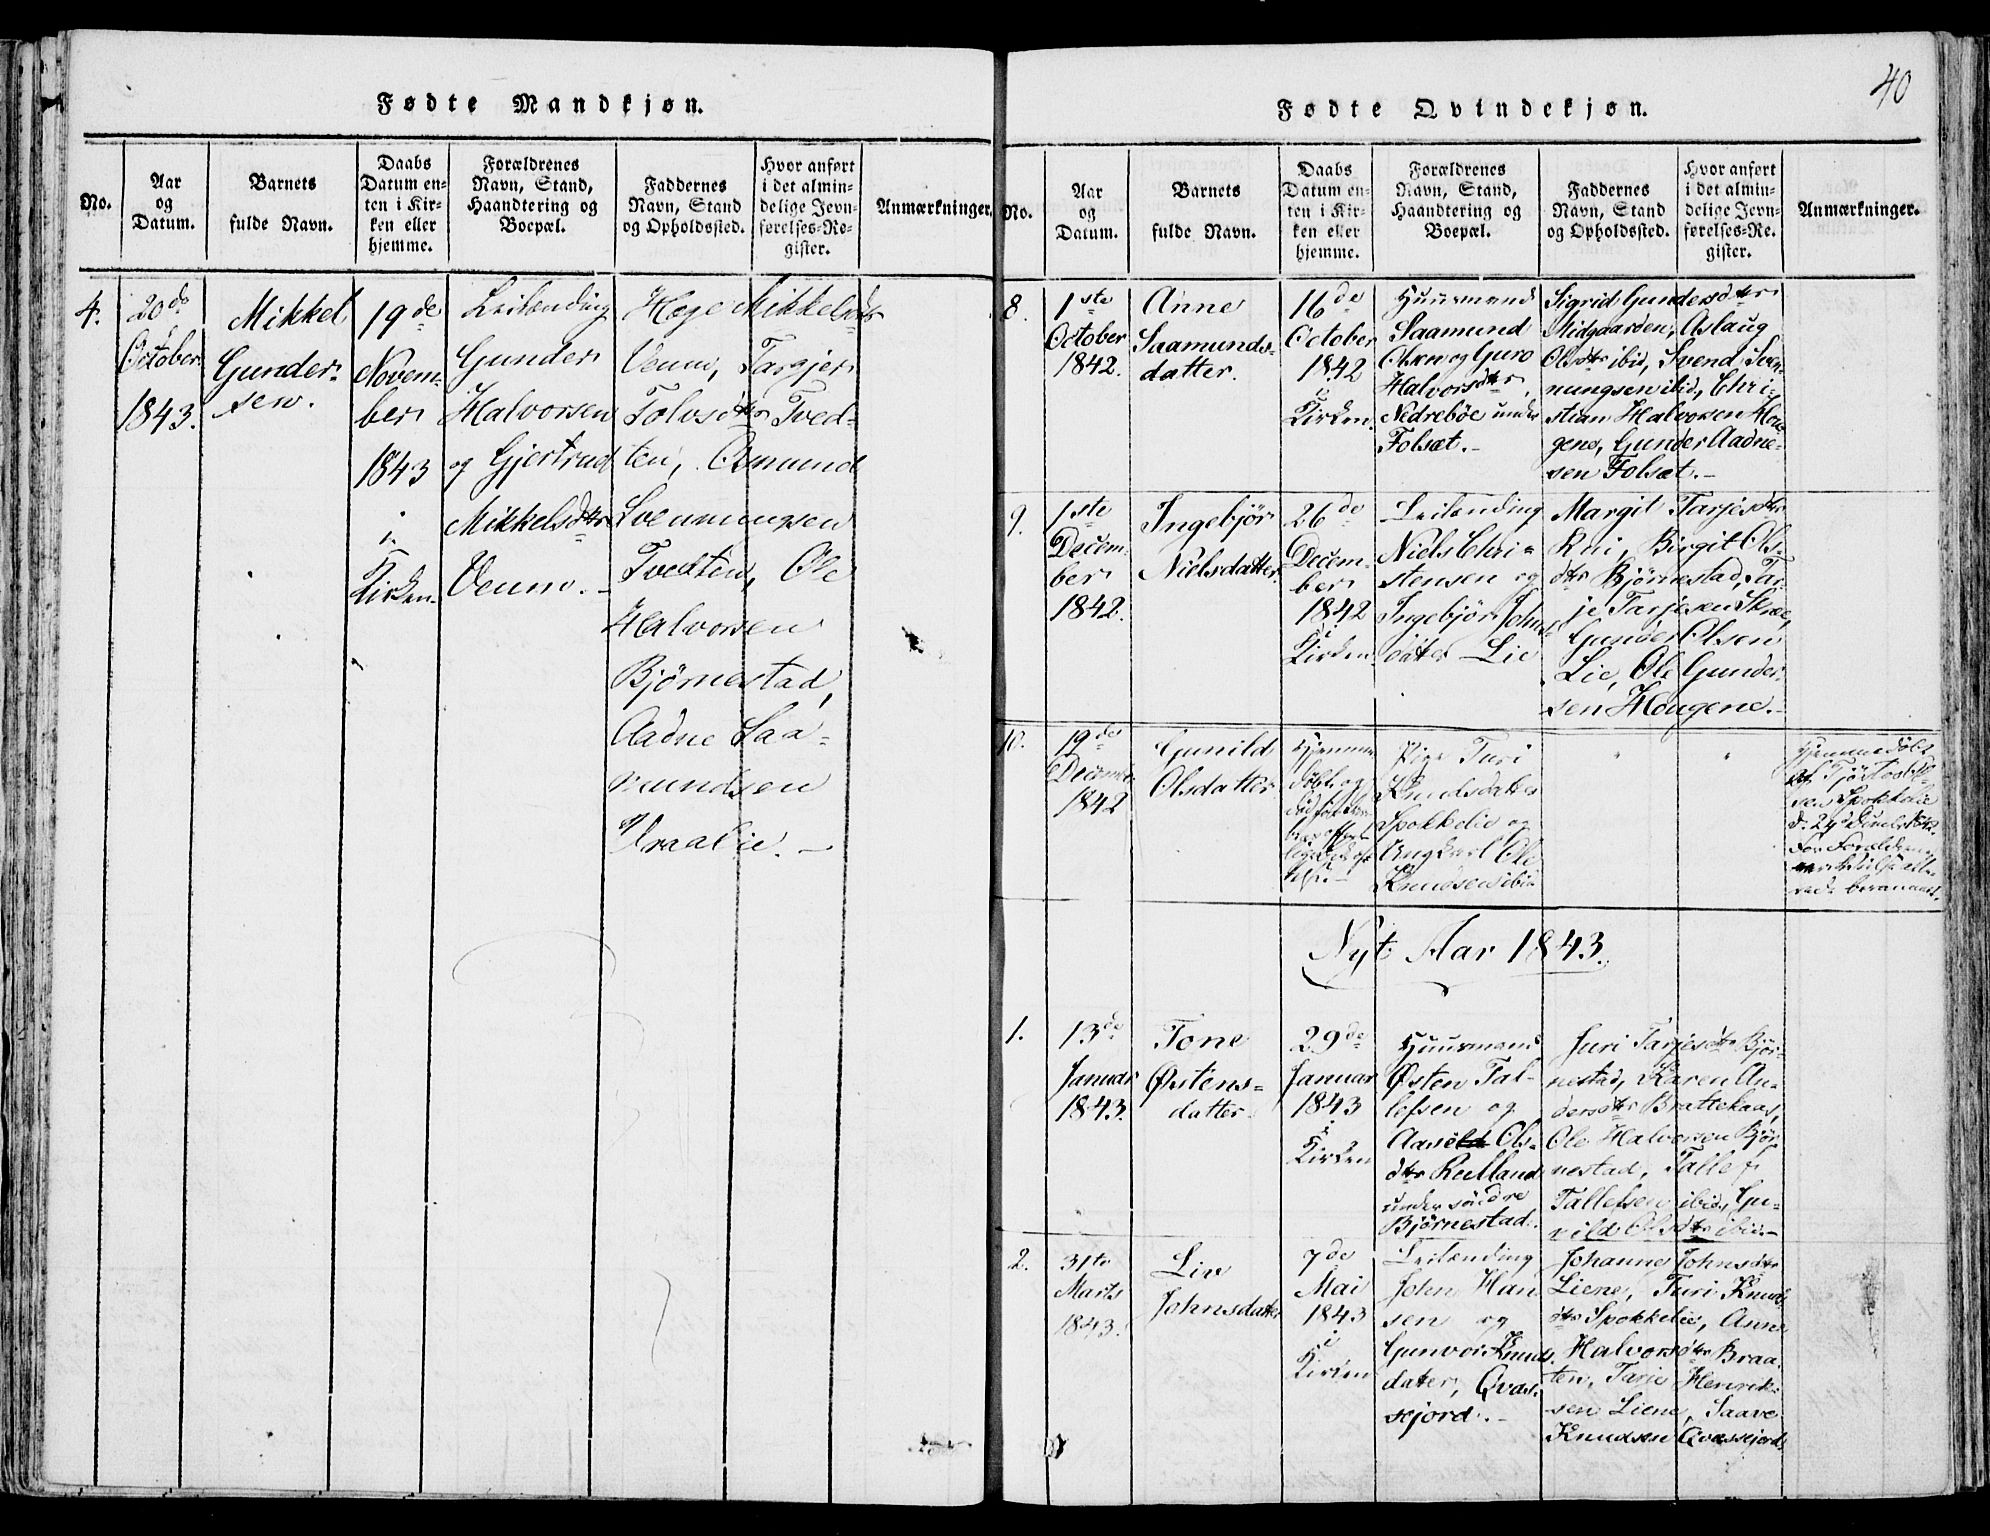 Fødte Mandkjøn.
No.
Aar
og
Datum.
Barnets
fulde Navn.
Daabs
Datum en-
ten i Kir-
ken eller
hjemme.
Forældrenes
Navn, Stand,
Haandtering og
Boepæl.
Faddernes
Navn, Stand
og Opholdssted.
Hvor anført
i det almin-
delige Jevn-
førelses-Re-
gister.
Anmærkninger.
4.
20de
October
1843.
Mikkel
Gunder-
sen.
19de
Novem-
ber
1843
i
Kirken.
Leilending
Gunder
Halvorsen
og Gjertrud
Mikkelsdtr
Venno.-
Hæge Mikkelsdtr
Venno, Targjer
Tolvsdtr Tved-
ten, Omund
Svennungsen
Tvedten, Ole
Halvorsen
Bjørnestad,
Aadne Saa-
mundsen
Vraalie.-
40
Fødte Qvindekjøn.
No.
Aar
og
Datum.
Barnets
fulde Navn.
Daabs
Datum en-
ten i Kir-
ken eller
hjemme.
Forældrenes
Navn, Stand,
Haandtering og
Boepæl.
Faddernes
Navn, Stand
og Opholdssted.
Hvor anført
i det almin-
delige Jevn-
førelses-Re-
gister.
Anmærkninger.
8.
1ste
October
1842.
Anne
Saamunds-
datter.
16de
October
1842
i
Kirken.
Huusmand
Saamund
Olsen og Guro
Halvorsdtr,
Nedrebøe under
Folsæt.-
Sigrid Gundersdtr
Midgaarden, Aslaug
Olsdtr ibid, Svend Sven-
nungsen ibid, Chri-
stian Halvorsen Hou-
gene, Gunder Aadne-
sen Folsæt.-
9.
1ste
Decem-
ber
1842.
Ingebjør
Nielsdatter.
26de
Decem-
ber
1842
i
Kirken.
Leilending
Niels Chri-
stensen og
Ingebjør Johns-
datter Lie
Margit Tarjesdtr
Rui, Birgit Ols-
dtr Bjørnestad, Tar-
je Tarjesen Skree,
Gunder Olsen
Lie, Ole Gunder-
sen Hougene.-
10.
19de
December
1842
Gunild
Olsdatter
Hjemme
døbt og
Pige Turi
Knudsdatter
Spokkelie og
Ungkarl Ole
Knudsen ibid
"
"
Hjemmedøbt
af
Spokkelie
Nyt Aar 1843.
1.
13de
Januar
1843.
Tone
Østens-
datter.
29de
Januar
1843
i
Kirken
Huusmand
Østen Tal-
lefsen og
Aase Ols-
dtr Rulland
under søndre
Bjørnestad.
Juri Tarjesdtr Bjør-
nestad, Karen An-
dersdtr Brattekaas,
Ole Halvorsen Bjør-
nestad, Tallef
Tallefsen ibid, Gu-
nild Olsdtr ibid.-
2.
31te
Marts
1843.
Liv
Johnsdatter
7de
Mai
1843
i
Kirken
Leilending
John Han
sen og
Gunvor Knuds-
datter, Qvas-
sejord.-
Johanne Johnsdtr
Liene, Turi Knuds-
dtr Spokkelie, Anne
Halvorsdtr Braa-
ten, Tarje Henrik-
sen Liene, Saave
Knudsen Qvassejord.